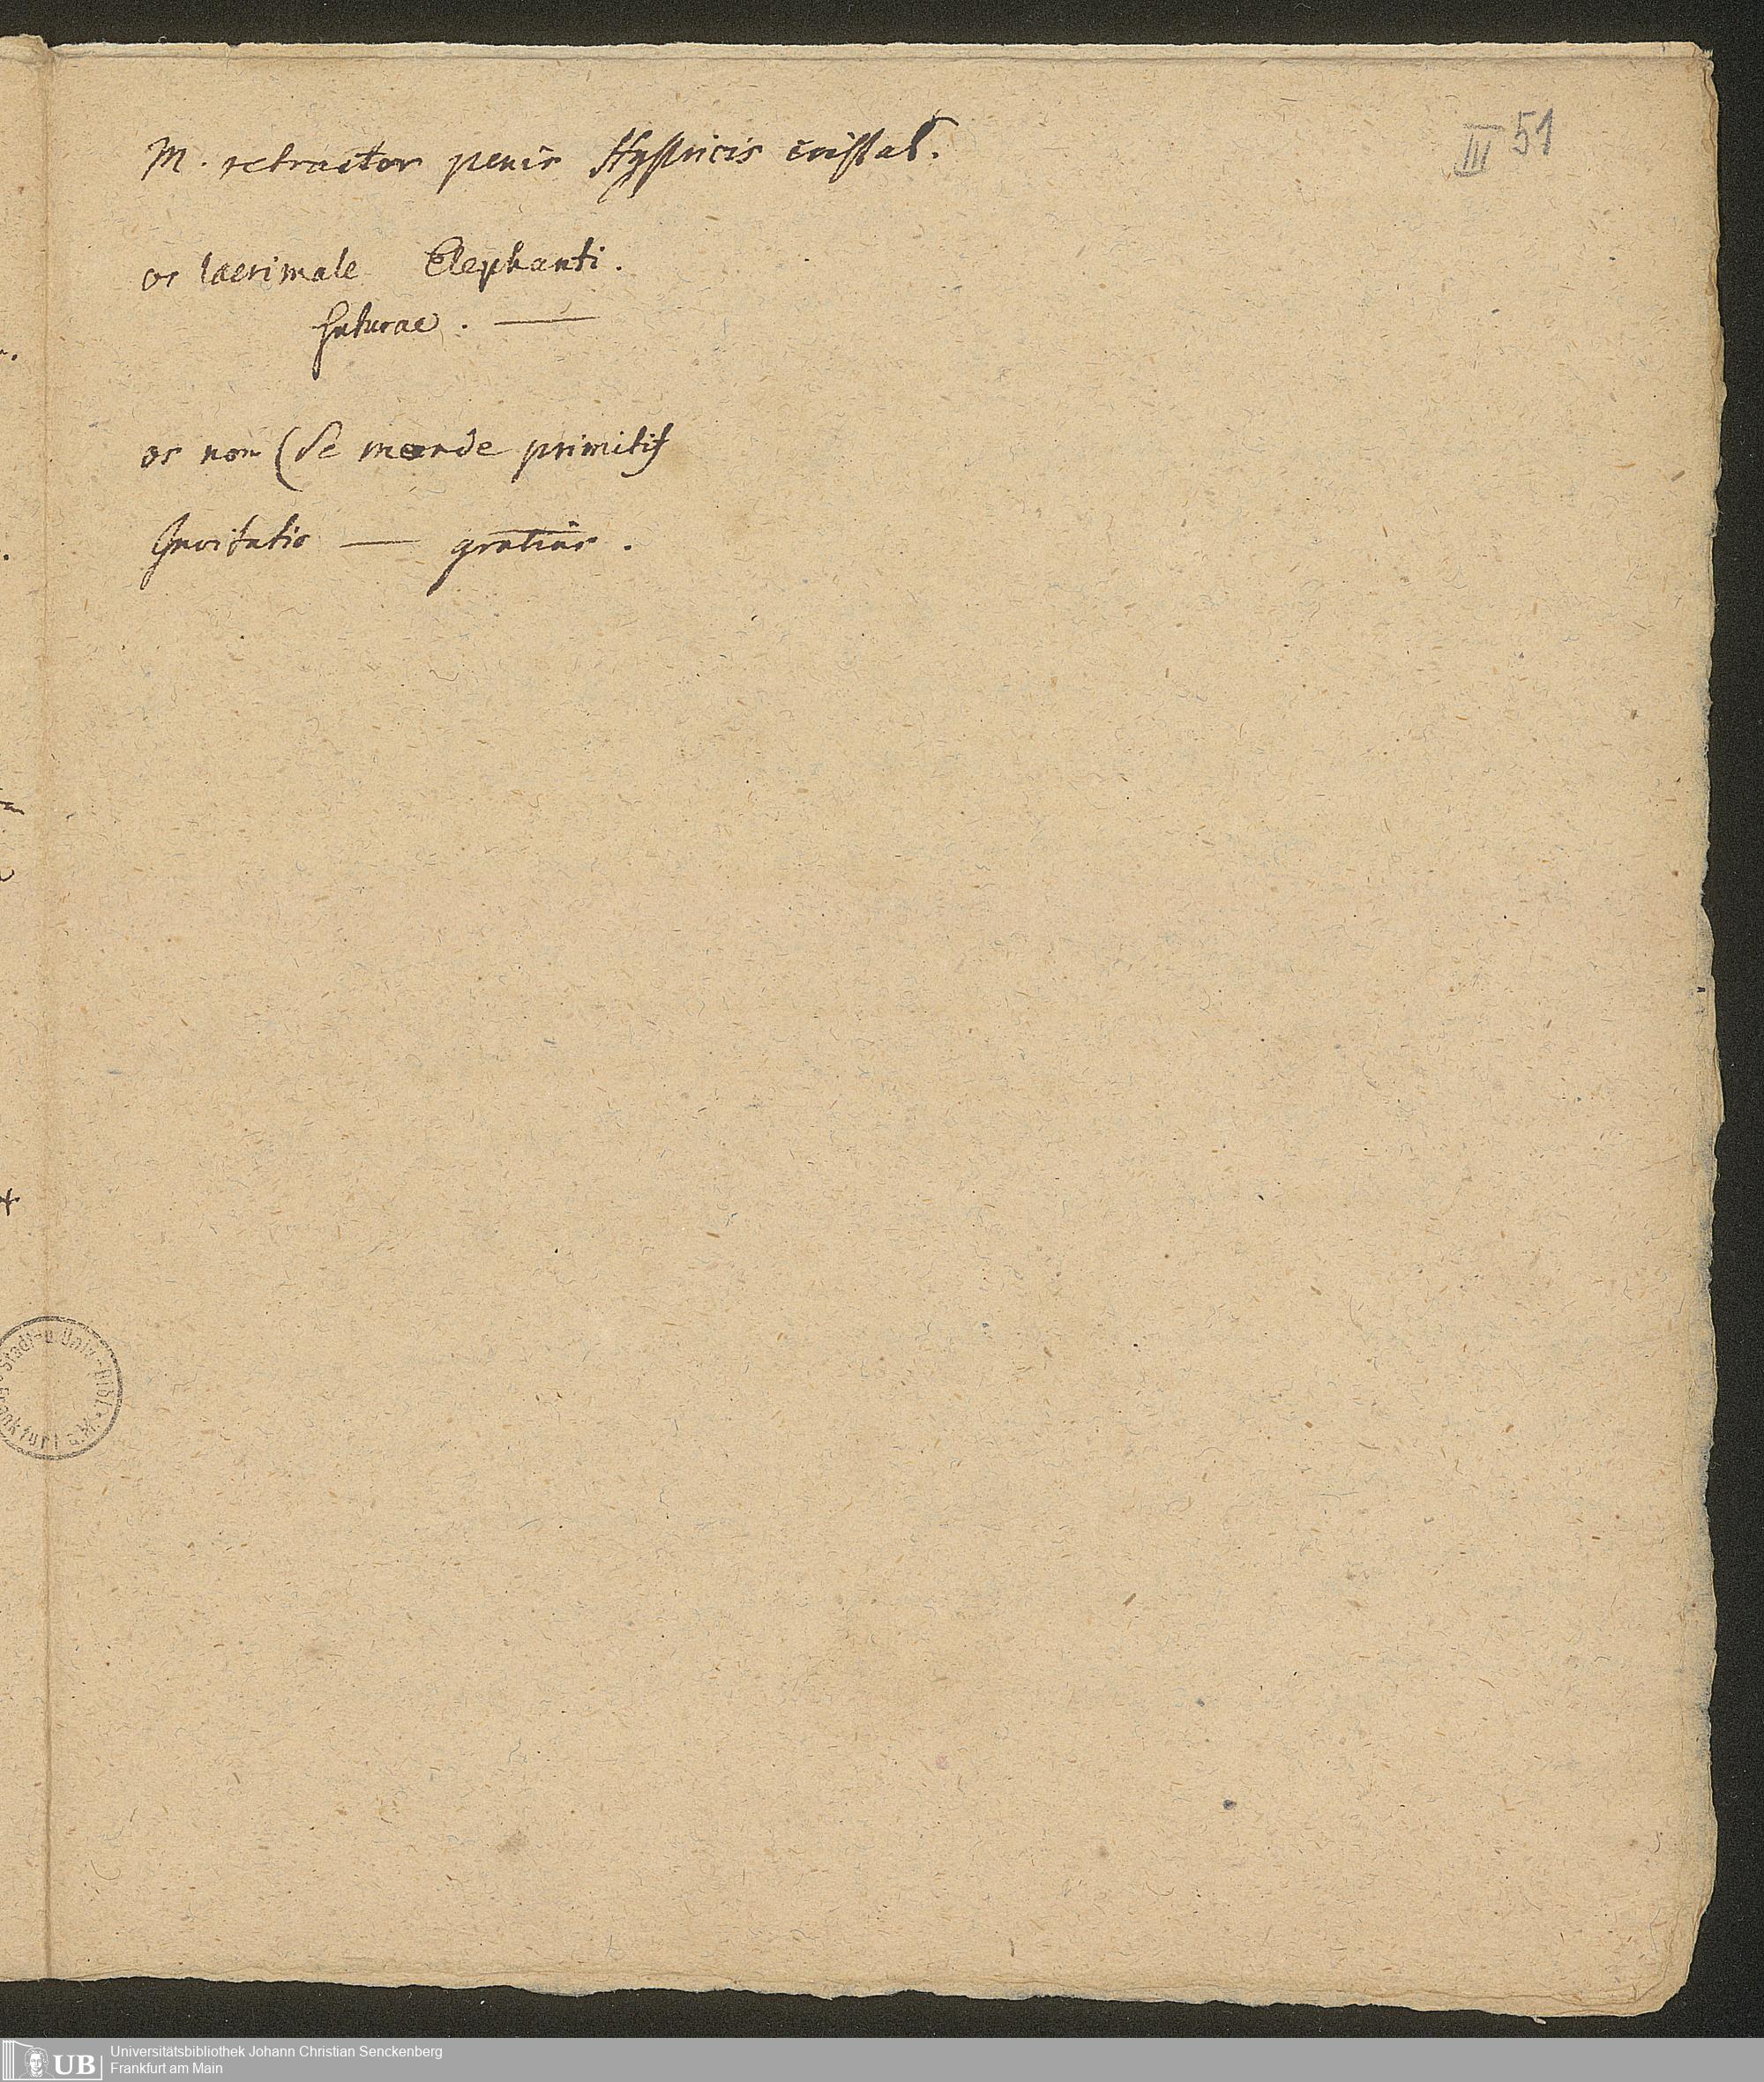 III 51
M. retractor penis Hystricis cristat.
os lacrimale Elephanti.
Suturae. —
os non (de monde primitif
Invitatio — gratias.
Stadt- u Univ.-Bibl.
Frankfurt a.M.
UB Universitätsbibliothek Johann Christian Senckenberg
Frankfurt am Main